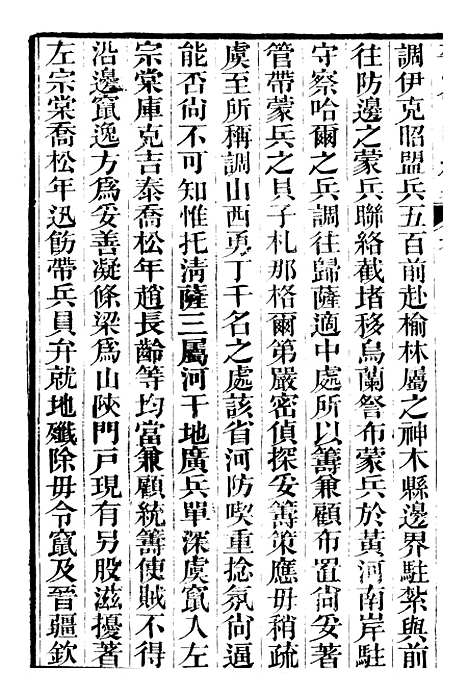 調伊克昭盟兵五百前赴榆林屬之神木縣邊界駐紮與前
往防邊之蒙兵聯絡截堵移烏蘭詧布蒙兵於黃河南岸駐
守察哈爾之兵調往歸薩適中處所以籌兼顧布置尙妥著
管帶蒙兵之貝子札那格爾第嚴密偵探妥籌策應毋稍疏
虞至所稱調山西勇丁千名之處該省河防喫重捻氛尙逼
能否尙不可知惟托淸薩三屬河干地廣兵單深虞竄入左
宗棠庫克吉泰喬松年趙長齡等均當兼顧統籌使賊不得
沿邊竄逸方爲妥善凝條梁爲山陝門戸現有另股滋擾著
左宗棠喬松年迅飭帶兵員弁就地殲除毋令竄及晉疆欽